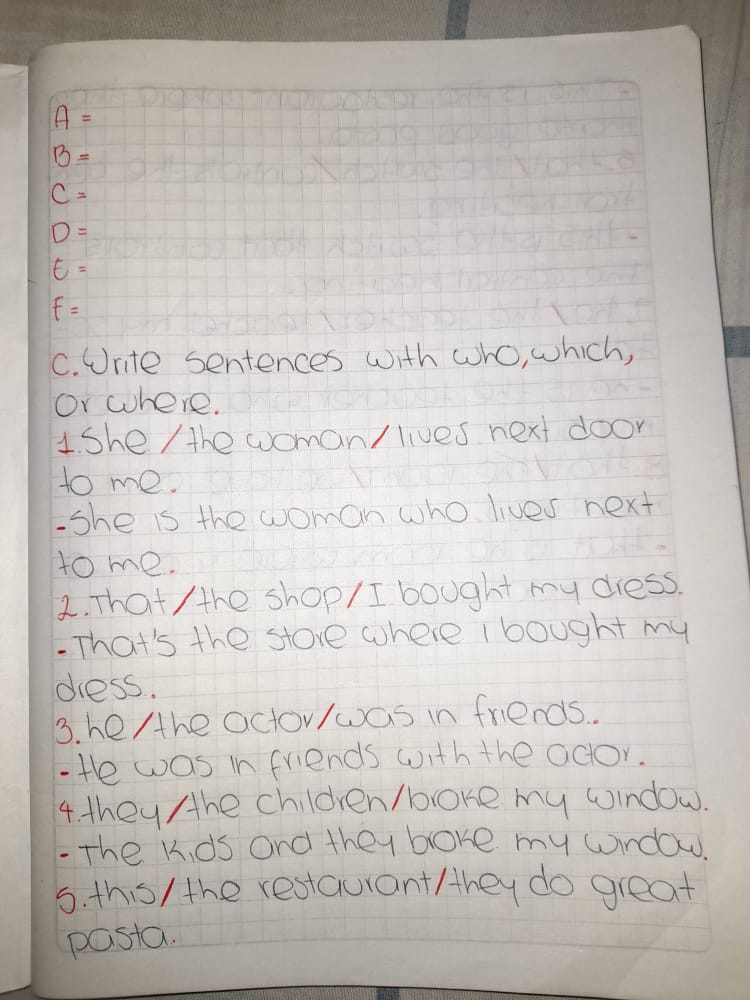 A =
B =
C =
D =
E =
F =
C. Write sentences with who, which,
or where.
1. She / the woman / lives next door
to me.
- She is the woman who lives next
to me.
2. That / the shop / I bought my dress.
- That's the store where I bought my
dress.
3. he / the actor / was in friends.
- He was in friends with the actor.
4. they / the children / broke my window.
- The kids and they broke my window.
5. this / the restaurant / they do great
pasta.